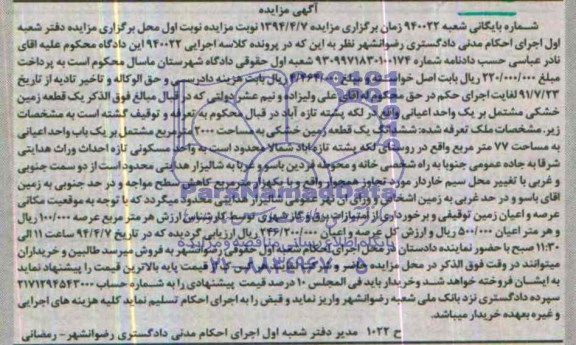 آگهی مزایده
شـــماره بایگانی شعبه ۹۴۰۰۲۲ زمان برگزاری مزایده ۱۳۹۴/۴/۷ نوبت مزایده نوبت اول محل برگزاری مزایده دفتر شعبه
اول اجرای احکام مدنی دادگستری رضوانشهر نظر به این که در پرونده کلاسه اجرایی ۹۴۰۰۲۲ این دادگاه محکوم علیه اقای
نادر عباسی حسب دادنامه شماره ۹۳۰۹۹۷۱۸۳۰۱۰۱۷۴ شعبه اول حقوقی دادگاه شهرستان ماسال محکوم است به پرداخت
مبلغ ۲۲۰/۰۰۰/۰۰۰ ریال بابت اصل خواسته و مبلغ ۴/۴۶۴/۰۰۰ ریال بابت هزینه دادرسی و حق الوکاله و تاخیر تادیه از تاریخ
۹۱/۷/۲۳ لغایت اجرای حکم در حق محکوم له اقای علی ولیزاده و نیم عشر دولتی که در قبال مبالغ فوق الذکر یک قطعه زمین
خشکی مشتمل بر یک واحد اعیانی واقع در لکه پشته تازه آباد در قبال محکوم به تعرفه و توقیف گشته است به مشخصات
زیر. مشخصات ملک تعرفه شده: ششدانگ یک قطعه زمین خشکی به مساحت ۲۰۰۰ مترمربع مشتمل بر یک باب واحد اعیانی
به مساحت ۷۷ متر مربع واقع در روستای لکه پشته تازه آباد شمالا محدود است به واحد مسکونی تازه احداث وراث هدایتی
شرقا به جاده عمومی جنوبا به راه شخصی خانه و محوطه فردین یاسر و غربا به شالیزار هدایتی محدود است از دو سمت جنوبی
و غربی با تغییر محل سیم خاردار مورد تجاوز همجوار واقع و تا یکهزار مترمربع کاهش سطح مواجه و در حد جنوبی به زمین
اقای یاسر و در حد غربی به زمین اشخاص و ورای آن نهر عمومی شالیزار هدایتی محدود میگردد که با توجه به موقعیت مکانی
عرصه و اعیان زمین توقیفی و برخورداری از امتیازات برق و گاز شهری توسط کارشناس ارزش هر متر مربع عرصه ۱۰۰/۰۰۰ ریال
و هر متر اعیان ۵۰۰/۰۰۰ ریال و ارزش کل عرصه و اعیان ۲۴۶/۲۰۰/۰۰۰ ریال ارزیابی گردیده که در تاریخ ۹۴/۴/۷ ساعت ۱۱ الی
۱۱:۳۰ صبح با حضور نماینده دادستان در محل اجرای احکام شعبه اول حقوقی رضوانشهر به فروش میرسد طالبین و خریداران
میتوانند در وقت فوق الذکر در محل مزایده حاضر و شرکت نمایند قیمت پایه بالاترین قیمت را پیشنهاد نماید
به ایشــان فروخته خواهد شــد وخریدار باید فی المجلس ۱۰ درصد قیمت پیشنهادی را به شماره حساب ۲۱۷۱۲۹۴۵۴۳۰۰۰
سپرده دادگستری نزد بانک ملی شعبه رضوانشهر واریز نماید و قبض را به اجرای احکام تسلیم نماید کلیه هزینه های اجرایی
و غیره بعهده خریدار میباشد.
ح ۱۰۲۲ مدیر دفتر شعبه اول اجرای احکام مدنی دادگستری رضوانشهر- رمضانی
پایگاه اطلاع رسانی مناقصه و مزایده